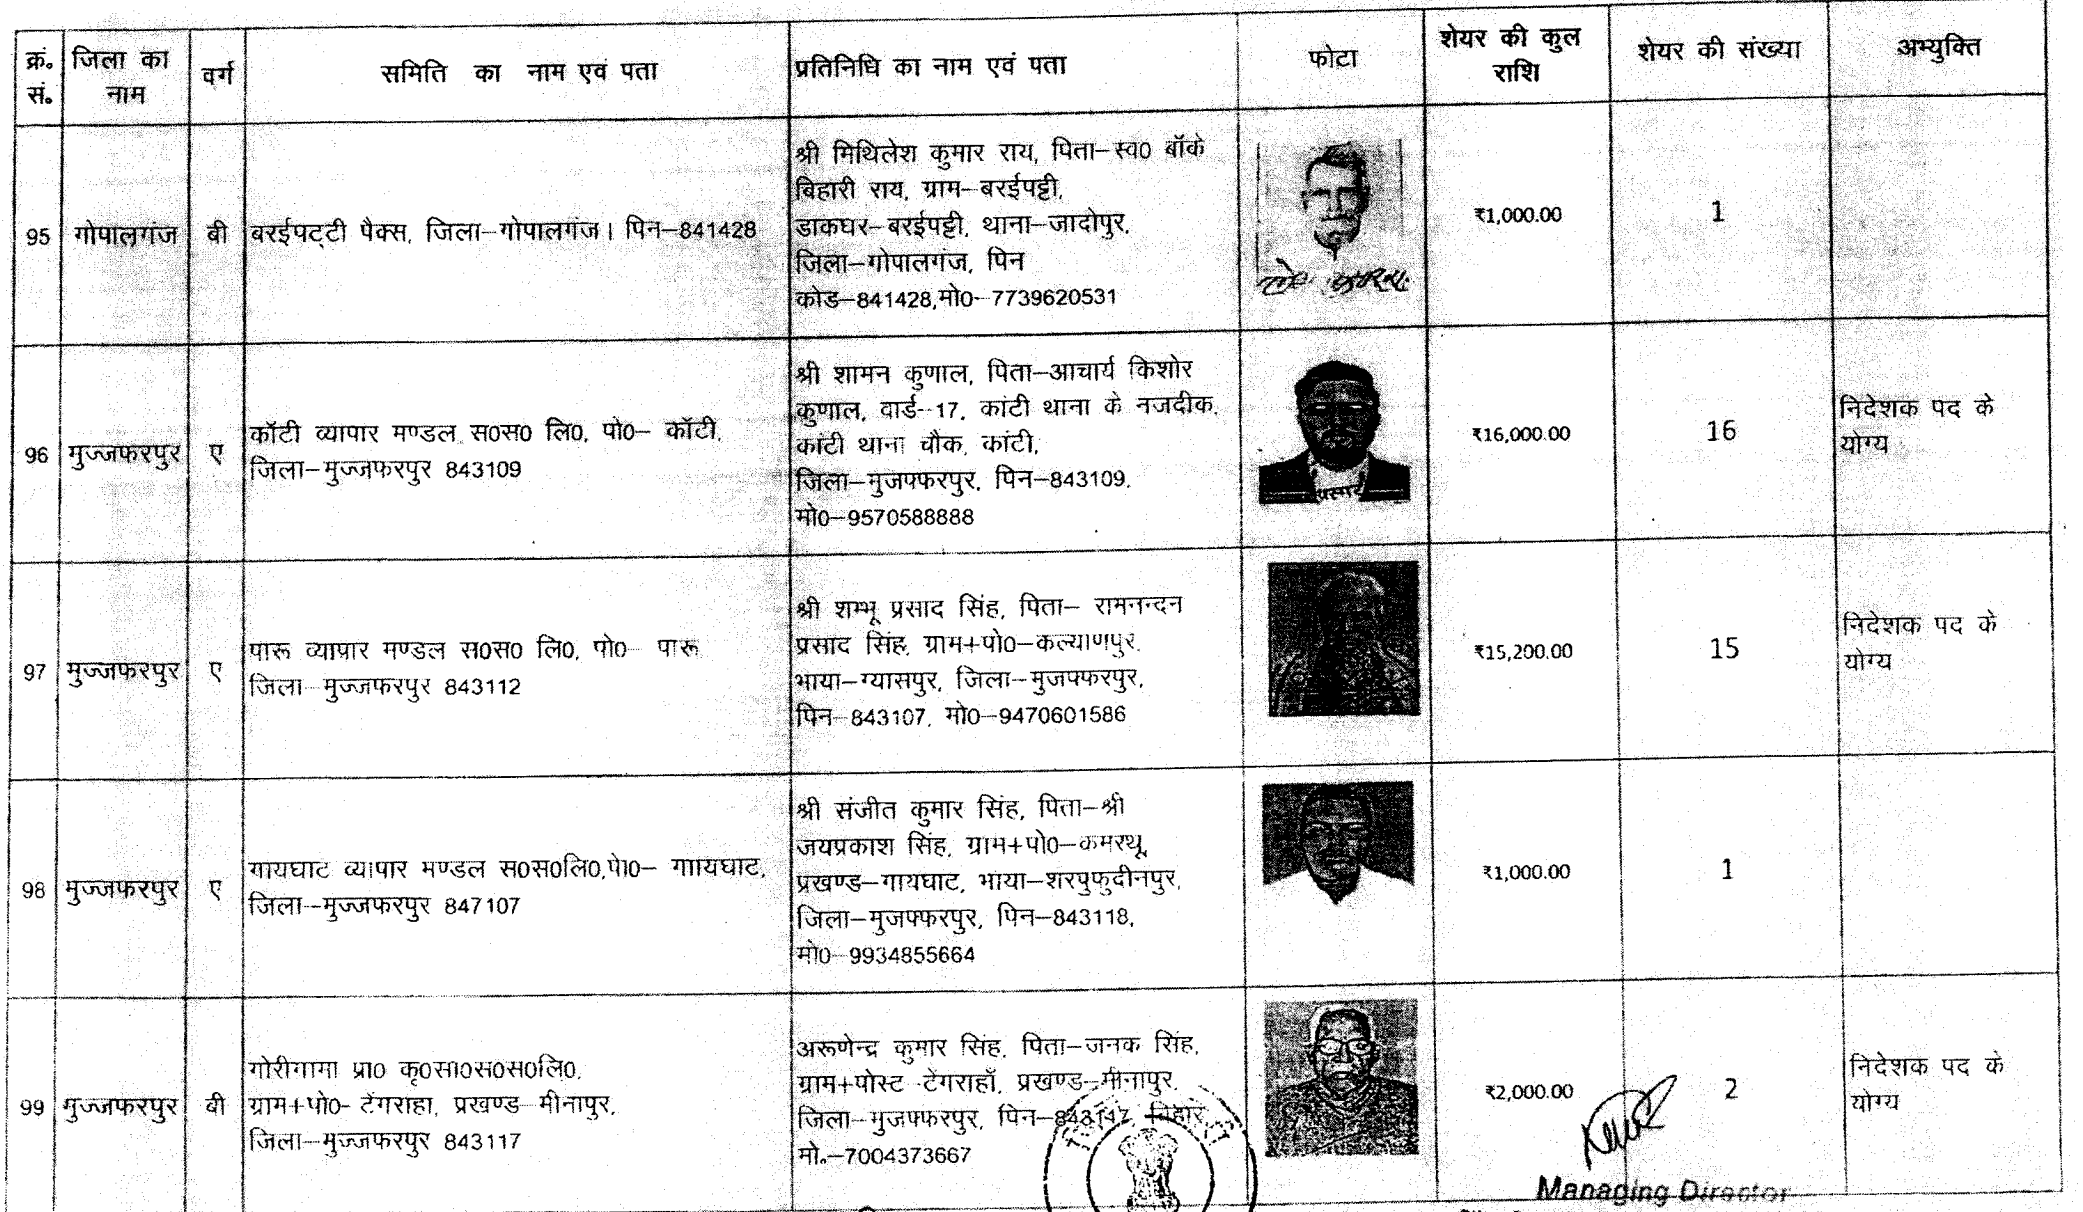 क्रं. सं.
जिला का नाम
वर्ग
समिति का नाम एवं पता
प्रतिनिधि का नाम एवं पता
फोटा
शेयर की कुल राशि
शेयर की संख्या
अभ्युक्ति
95
गोपालगंज
बी
बरईपट्टी पैक्स, जिला–गोपालगंज। पिन–841428
श्री मिथिलेश कुमार राय, पिता–स्व0 बॉके
बिहारी राय, ग्राम–बरईपट्टी,
डाकघर–बरईपट्टी, थाना–जादोपुर,
जिला–गोपालगंज, पिन
कोड–841428,मो0–7739620531
₹1,000.00
1
96
मुज्जफरपुर
ए
कॉटी व्यापार मण्डल स0स0 लि0, पो0– कॉटी,
जिला–मुज्जफरपुर 843109
श्री शामन कुणाल, पिता–आचार्य किशोर
कुणाल, वार्ड–17, कांटी थाना के नजदीक,
कांटी थाना चौक, कांटी,
जिला–मुजफ्फरपुर, पिन–843109,
मो0–9570588888
₹16,000.00
16
निदेशक पद के
योग्य
97
मुज्जफरपुर
ए
पारू व्यापार मण्डल स0स0 लि0, पो0– पारू
जिला–मुज्जफरपुर 843112
श्री शम्भू प्रसाद सिंह, पिता– रामनन्दन
प्रसाद सिंह, ग्राम+पो0–कल्याणपुर,
भाया–ग्यासपुर, जिला–मुजफ्फरपुर,
पिन–843107, मो0–9470601586
₹15,200.00
15
निदेशक पद के
योग्य
98
मुज्जफरपुर
ए
गायघाट व्यापार मण्डल स0स0लि0,पो0– गाायघाट,
जिला–मुज्जफरपुर 847107
श्री संजीत कुमार सिंह, पिता–श्री
जयप्रकाश सिंह, ग्राम+पो0–कमरथू,
प्रखण्ड–गायघाट, भाया–शरपुफुदीनपुर,
जिला–मुजफ्फरपुर, पिन–843118,
मो0–9934855664
₹1,000.00
1
99
मुज्जफरपुर
बी
गोरीगामा प्रा0 कृ0सा0स0स0लि0,
ग्राम+पो0- टेंगराहा, प्रखण्ड–मीनापुर,
जिला–मुज्जफरपुर 843117
अरूणेन्द्र कुमार सिंह, पिता–जनक सिंह,
ग्राम+पोस्ट–टेंगराहाँ, प्रखण्ड–मीनापुर,
जिला–मुजफ्फरपुर, पिन–843117, बिहार,
मो.–7004373667
₹2,000.00
2
निदेशक पद के
योग्य
Managing Director